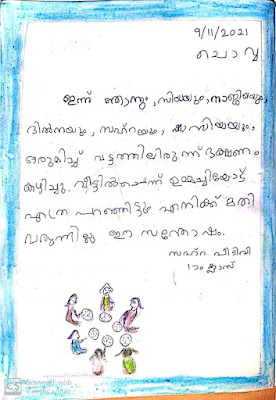 9/11/2021
ചൊവ്വ
ഇന്ന് ഞാനും, സിയയും, നാജിയയും,
ദിൽനയും, സഹ്റയും, ഷാസിയയും,
ഒരുമിച്ച് വട്ടത്തിലിരുന്ന് ഭക്ഷണം
കഴിച്ചു. വീട്ടിൽ ചെന്ന് ഉമ്മച്ചിയോട്
എത്ര പറഞ്ഞിട്ടും എനിക്ക് മതി
വരുന്നില്ല ഈ സന്തോഷം.
സഹ്റ പി ടി വി
1ാം ക്ലാസ്
CS Scanned with CamScanner